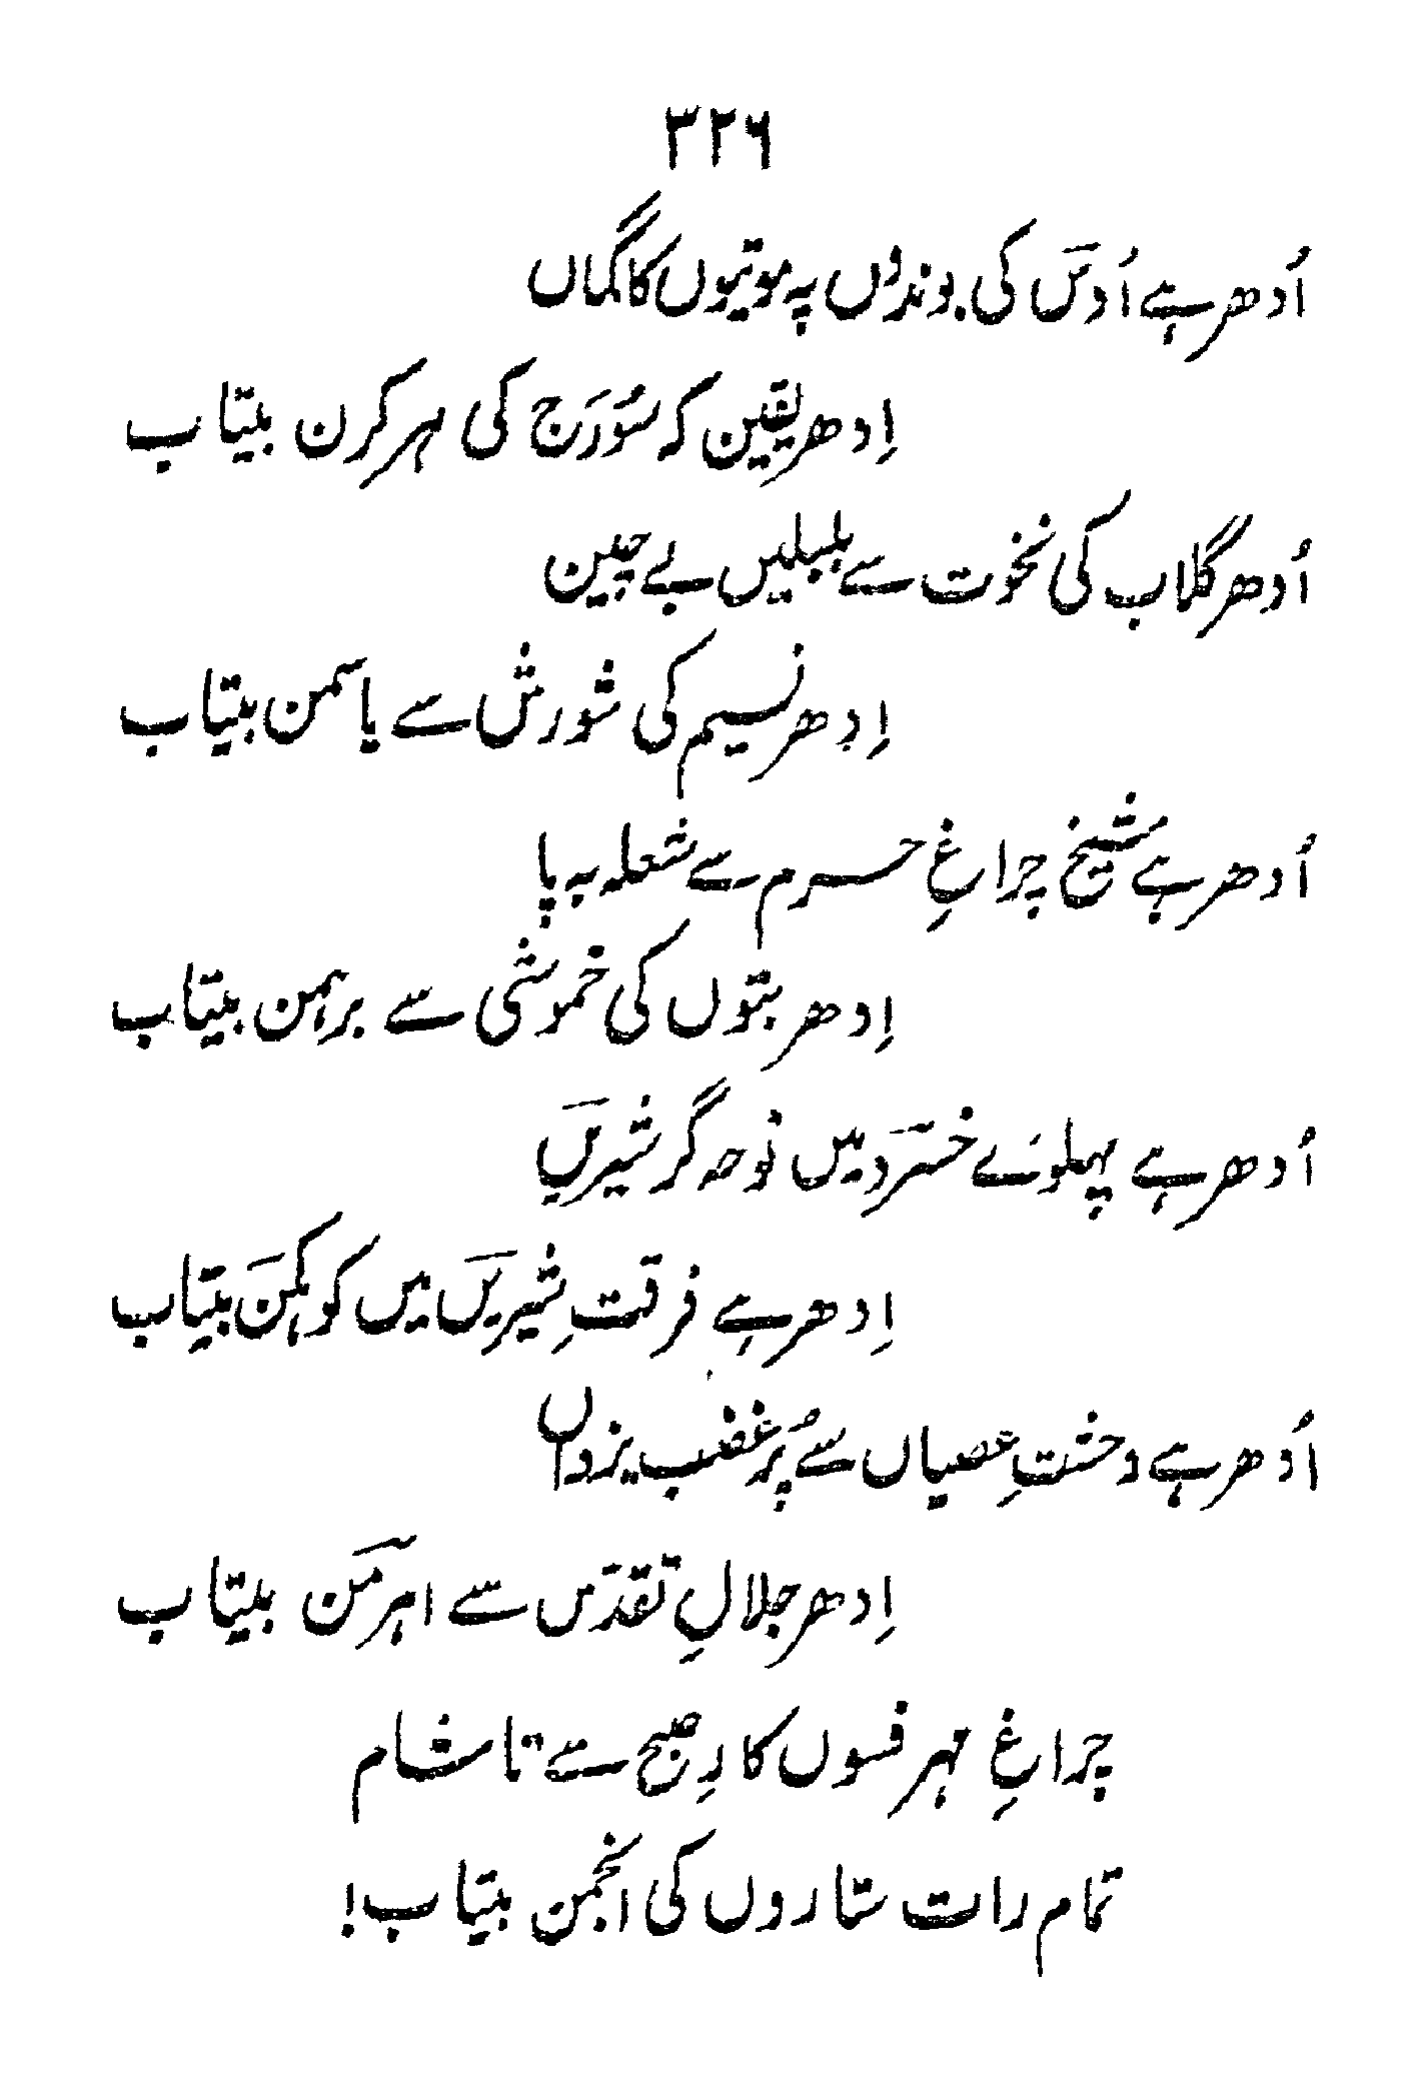 ۳۲۶
اُدھر ہے اُوس کی بوندوں پہ موتیوں کا گماں
اِدھر یقین کہ سُورَج کی ہر کرن بیتاب
اُدھر گلاب کی نخوت سے بلبلیں بے چین
اِدھر نسیم کی شورش سے یاسمن بیتاب
اُدھر ہے شیخ چراغِ حرم سے شعلہ بہ پا
اِدھر بتوں کی خموشی سے برہمن بیتاب
اُدھر ہے پہلوئے خسرو میں نوحہ گر شیریں
اِدھر ہے فرقتِ شیریں میں کوہکن بیتاب
اُدھر ہے وحشتِ عصیاں سے پُر غضب یزداں
اِدھر جلالِ تقدس سے اہرمن بیتاب
چراغِ مہر فسوں کار صبح سے تا شام
تمام رات ستاروں کی انجمن بیتاب!